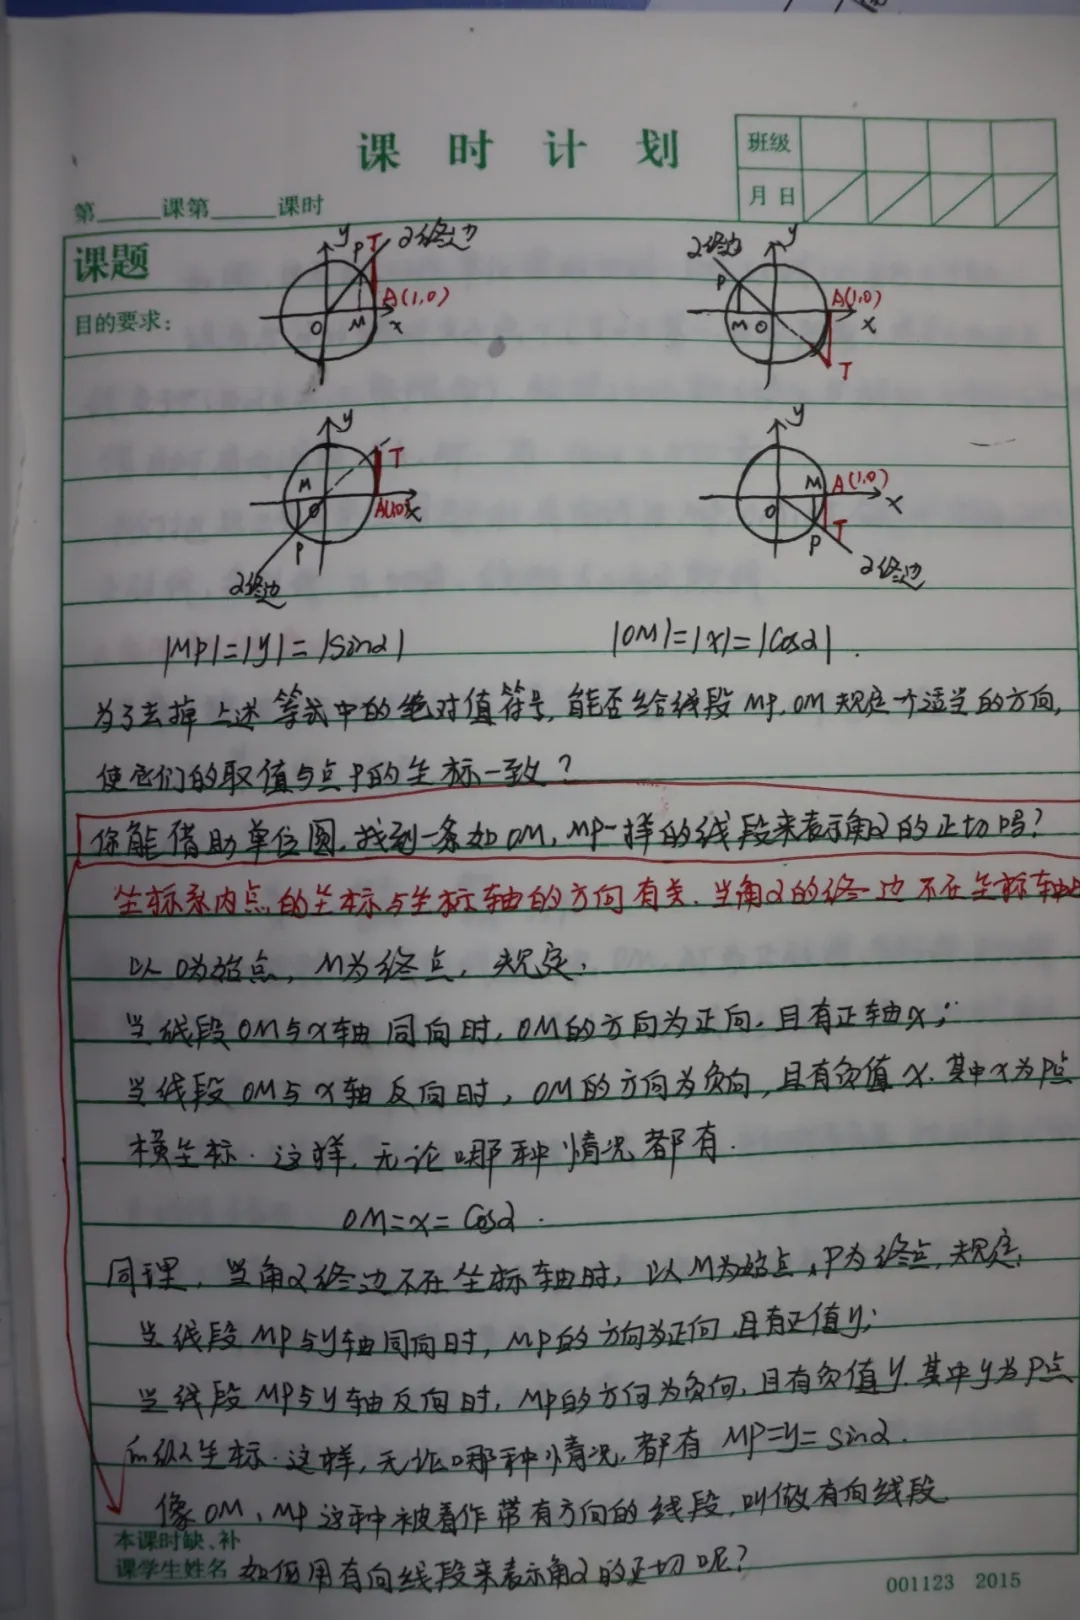 课时计划
班级
月 日
第____课第____课时
课题
目的要求:
y P T α终边
A(1,0)
O M x
α终边 y
P A(1,0)
M O x
T
y
T
M
O A(1,0) x
P
α终边
y
M A(1,0)
O x
P T
α终边
|MP|=|y|=|sinα| |OM|=|x|=|cosα|.
为了去掉上述等式中的绝对值符号,能否给线段MP,OM规定一个适当的方向,
使它们的取值与点P的坐标一致?
你能借助单位圆,找到一条如OM,MP一样的线段来表示角α的正切吗?
坐标系内点的坐标与坐标轴的方向有关.当角α的终边不在坐标轴
以O为始点,M为终点,规定:
当线段OM与x轴同向时,OM的方向为正向,且有正轴x;
当线段OM与x轴反向时,OM的方向为负向,且有负值x.其中x为P点
横坐标.这样,无论哪种情况都有.
OM=x=cosα.
同理,当角α终边不在坐标轴时,以M为始点,P为终点,规定:
当线段MP与y轴同向时,MP的方向为正向,且有正值y;
当线段MP与y轴反向时,MP的方向为负向,且有负值y.其中y为P点
的纵坐标.这样,无论哪种情况,都有MP=y=sinα.
像OM,MP这种被看作带有方向的线段,叫做有向线段
本课时缺、补
课学生姓名 如何用有向线段来表示角α的正切呢?
001123 2015